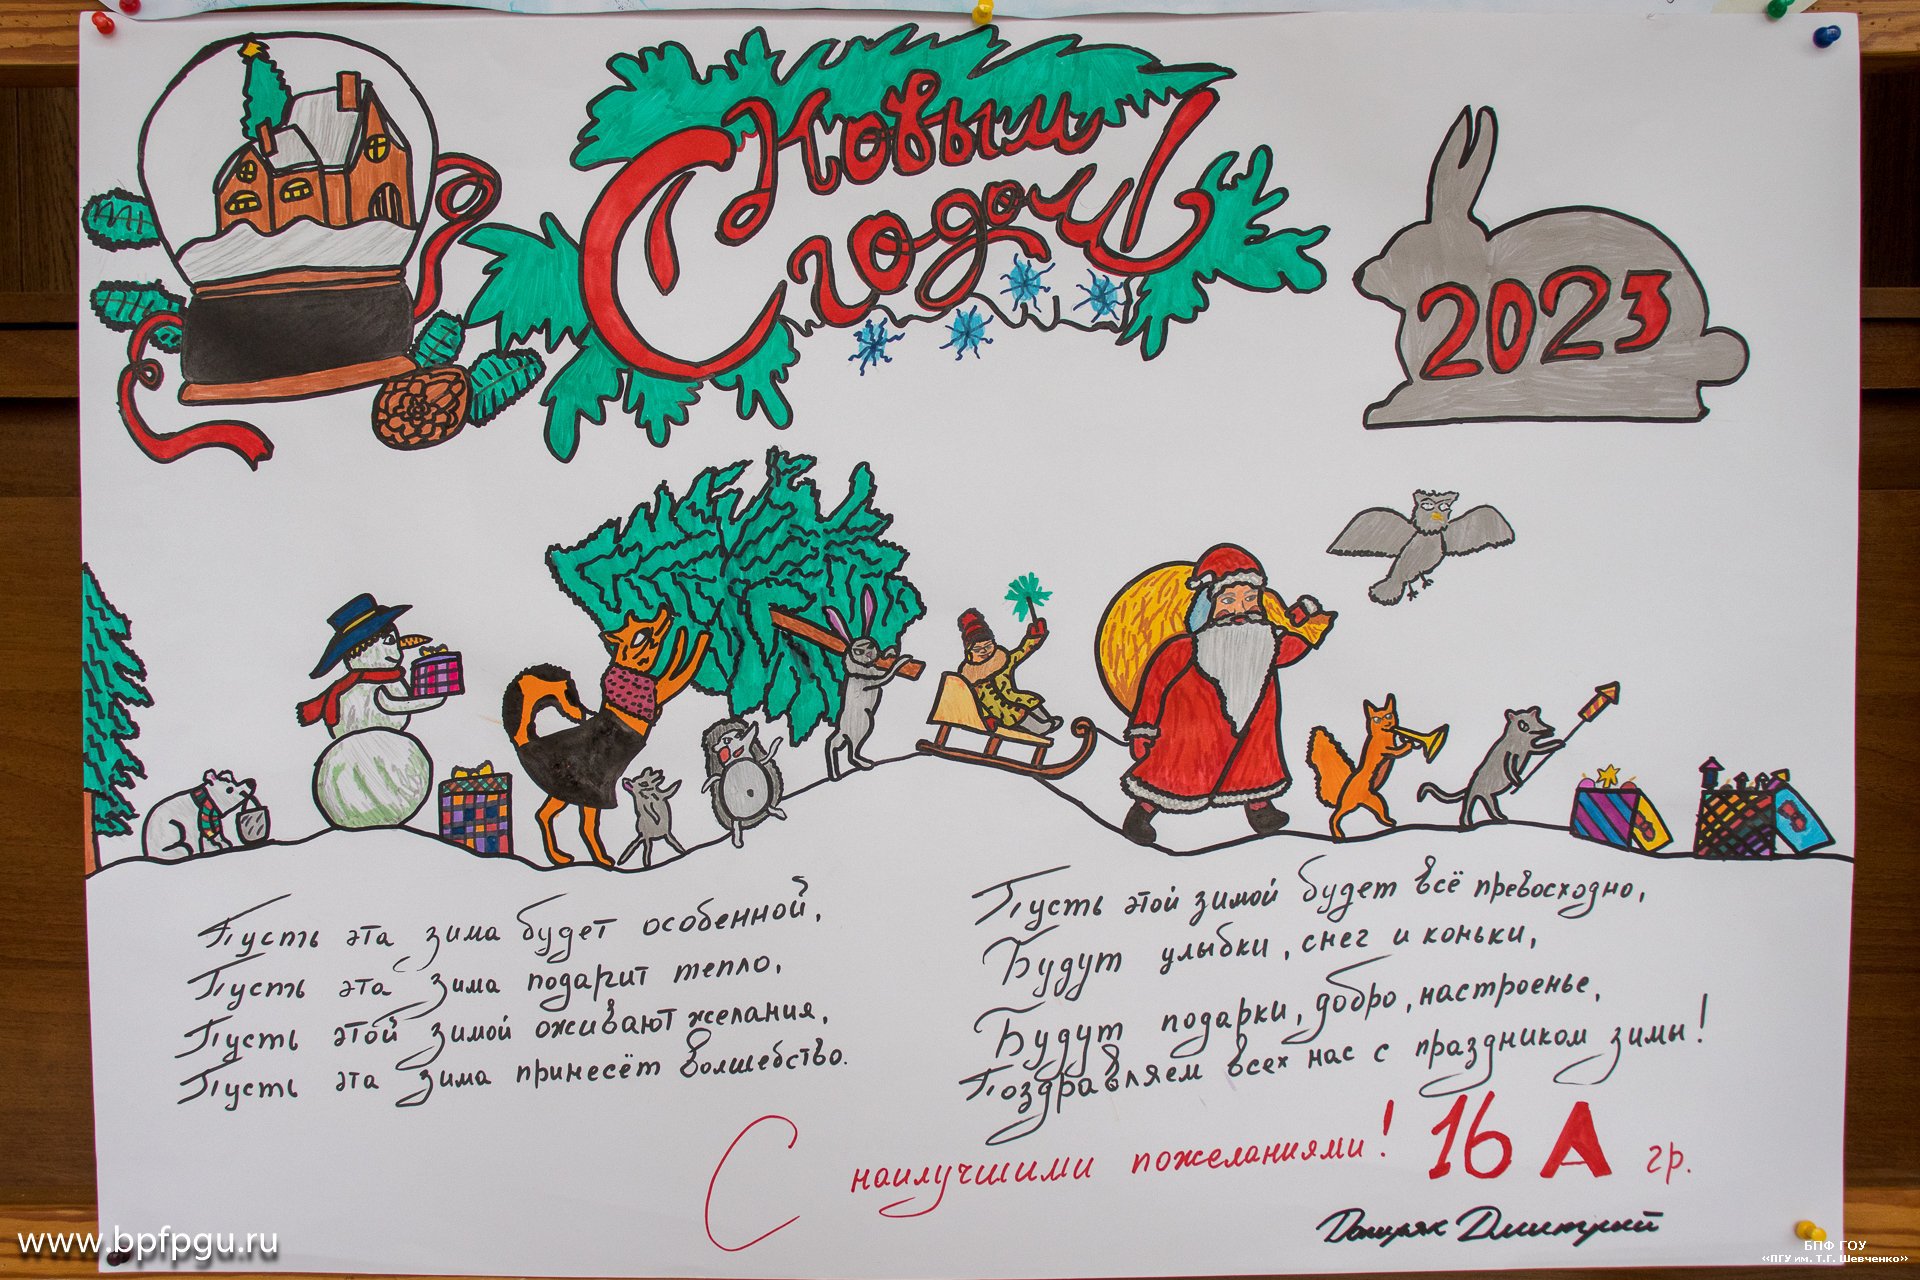 С Новым
годом!
2023
Пусть эта зима будет особенной,
Пусть эта зима подарит тепло,
Пусть этой зимой оживают желания,
Пусть эта зима принесёт волшебство.
Пусть этой зимой будет всё превосходно,
Будут улыбки, снег и коньки,
Будут подарки, добро, настроенье,
Поздравляем всех нас с праздником зимы!
С наилучшими пожеланиями! 16 А гр.
Дмитрий
www.bpfpgu.ru
БПФ ГОУ
«ПГУ им. Т.Г. Шевченко»